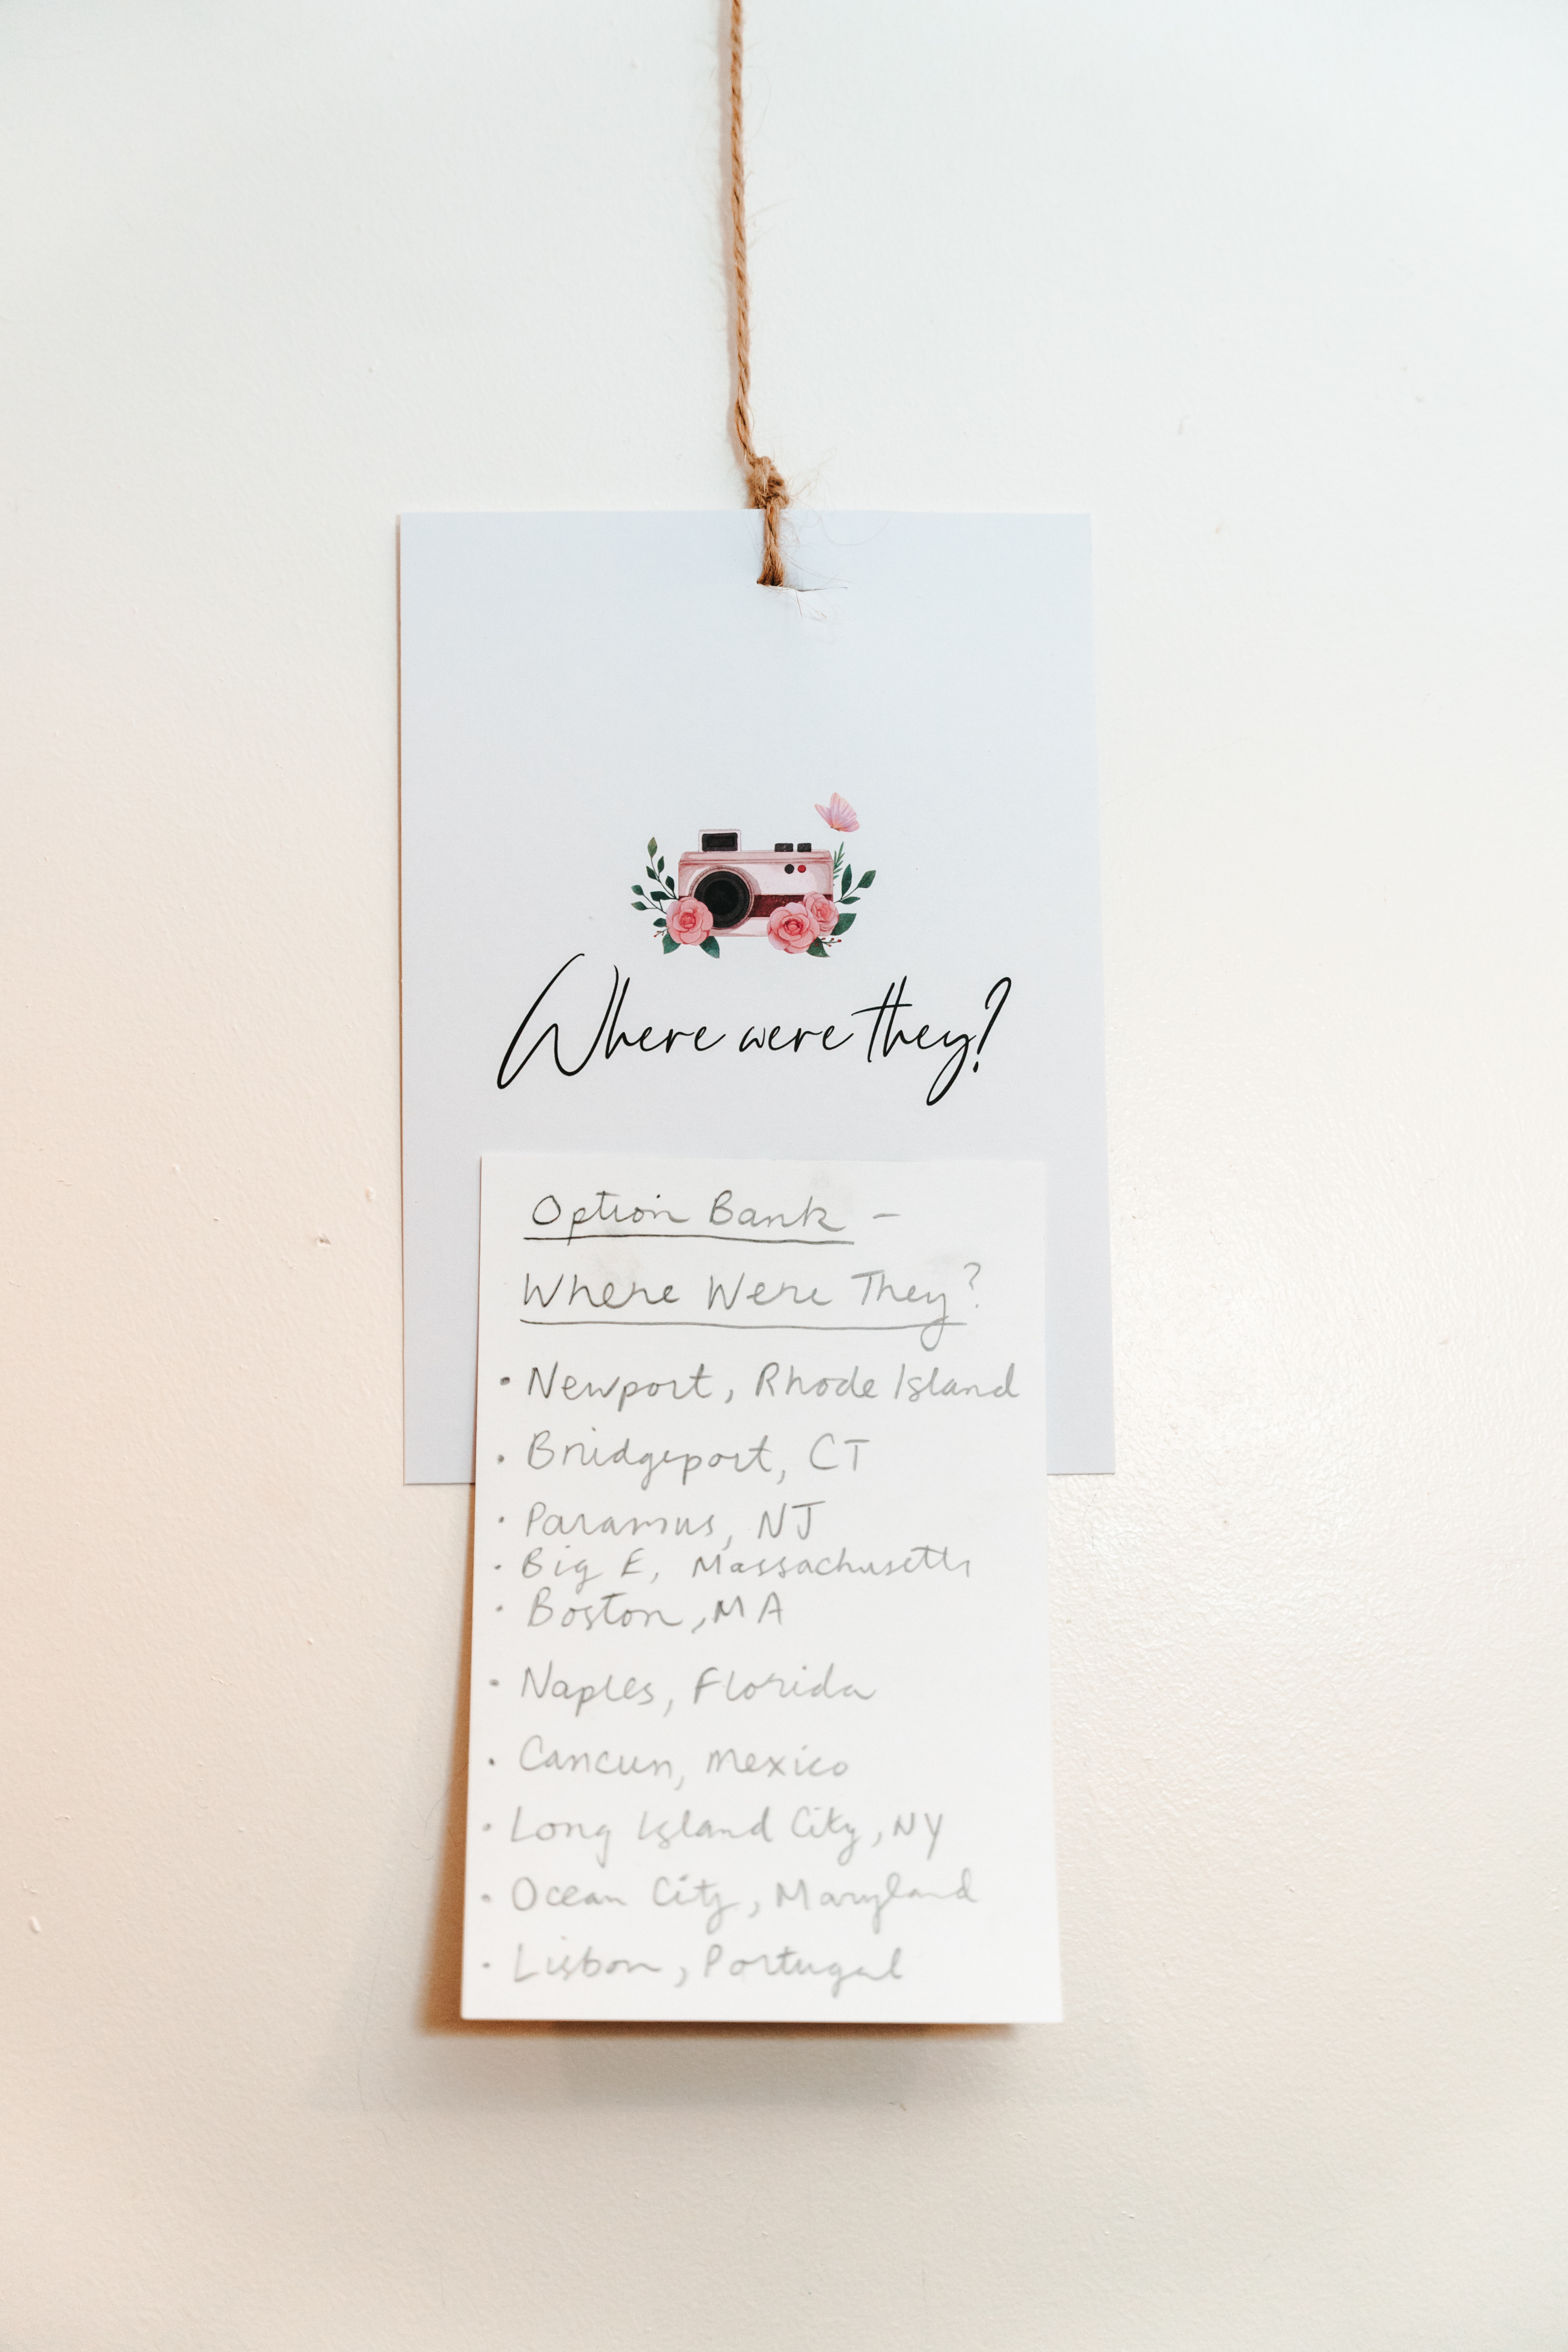 Where were they?
Option Bank -
Where Were They?
• Newport, Rhode Island
• Bridgeport, CT
• Paramus, NJ
• Big E, Massachusetts
• Boston, MA
• Naples, Florida
• Cancun, Mexico
• Long Island City, NY
• Ocean City, Maryland
• Lisbon, Portugal